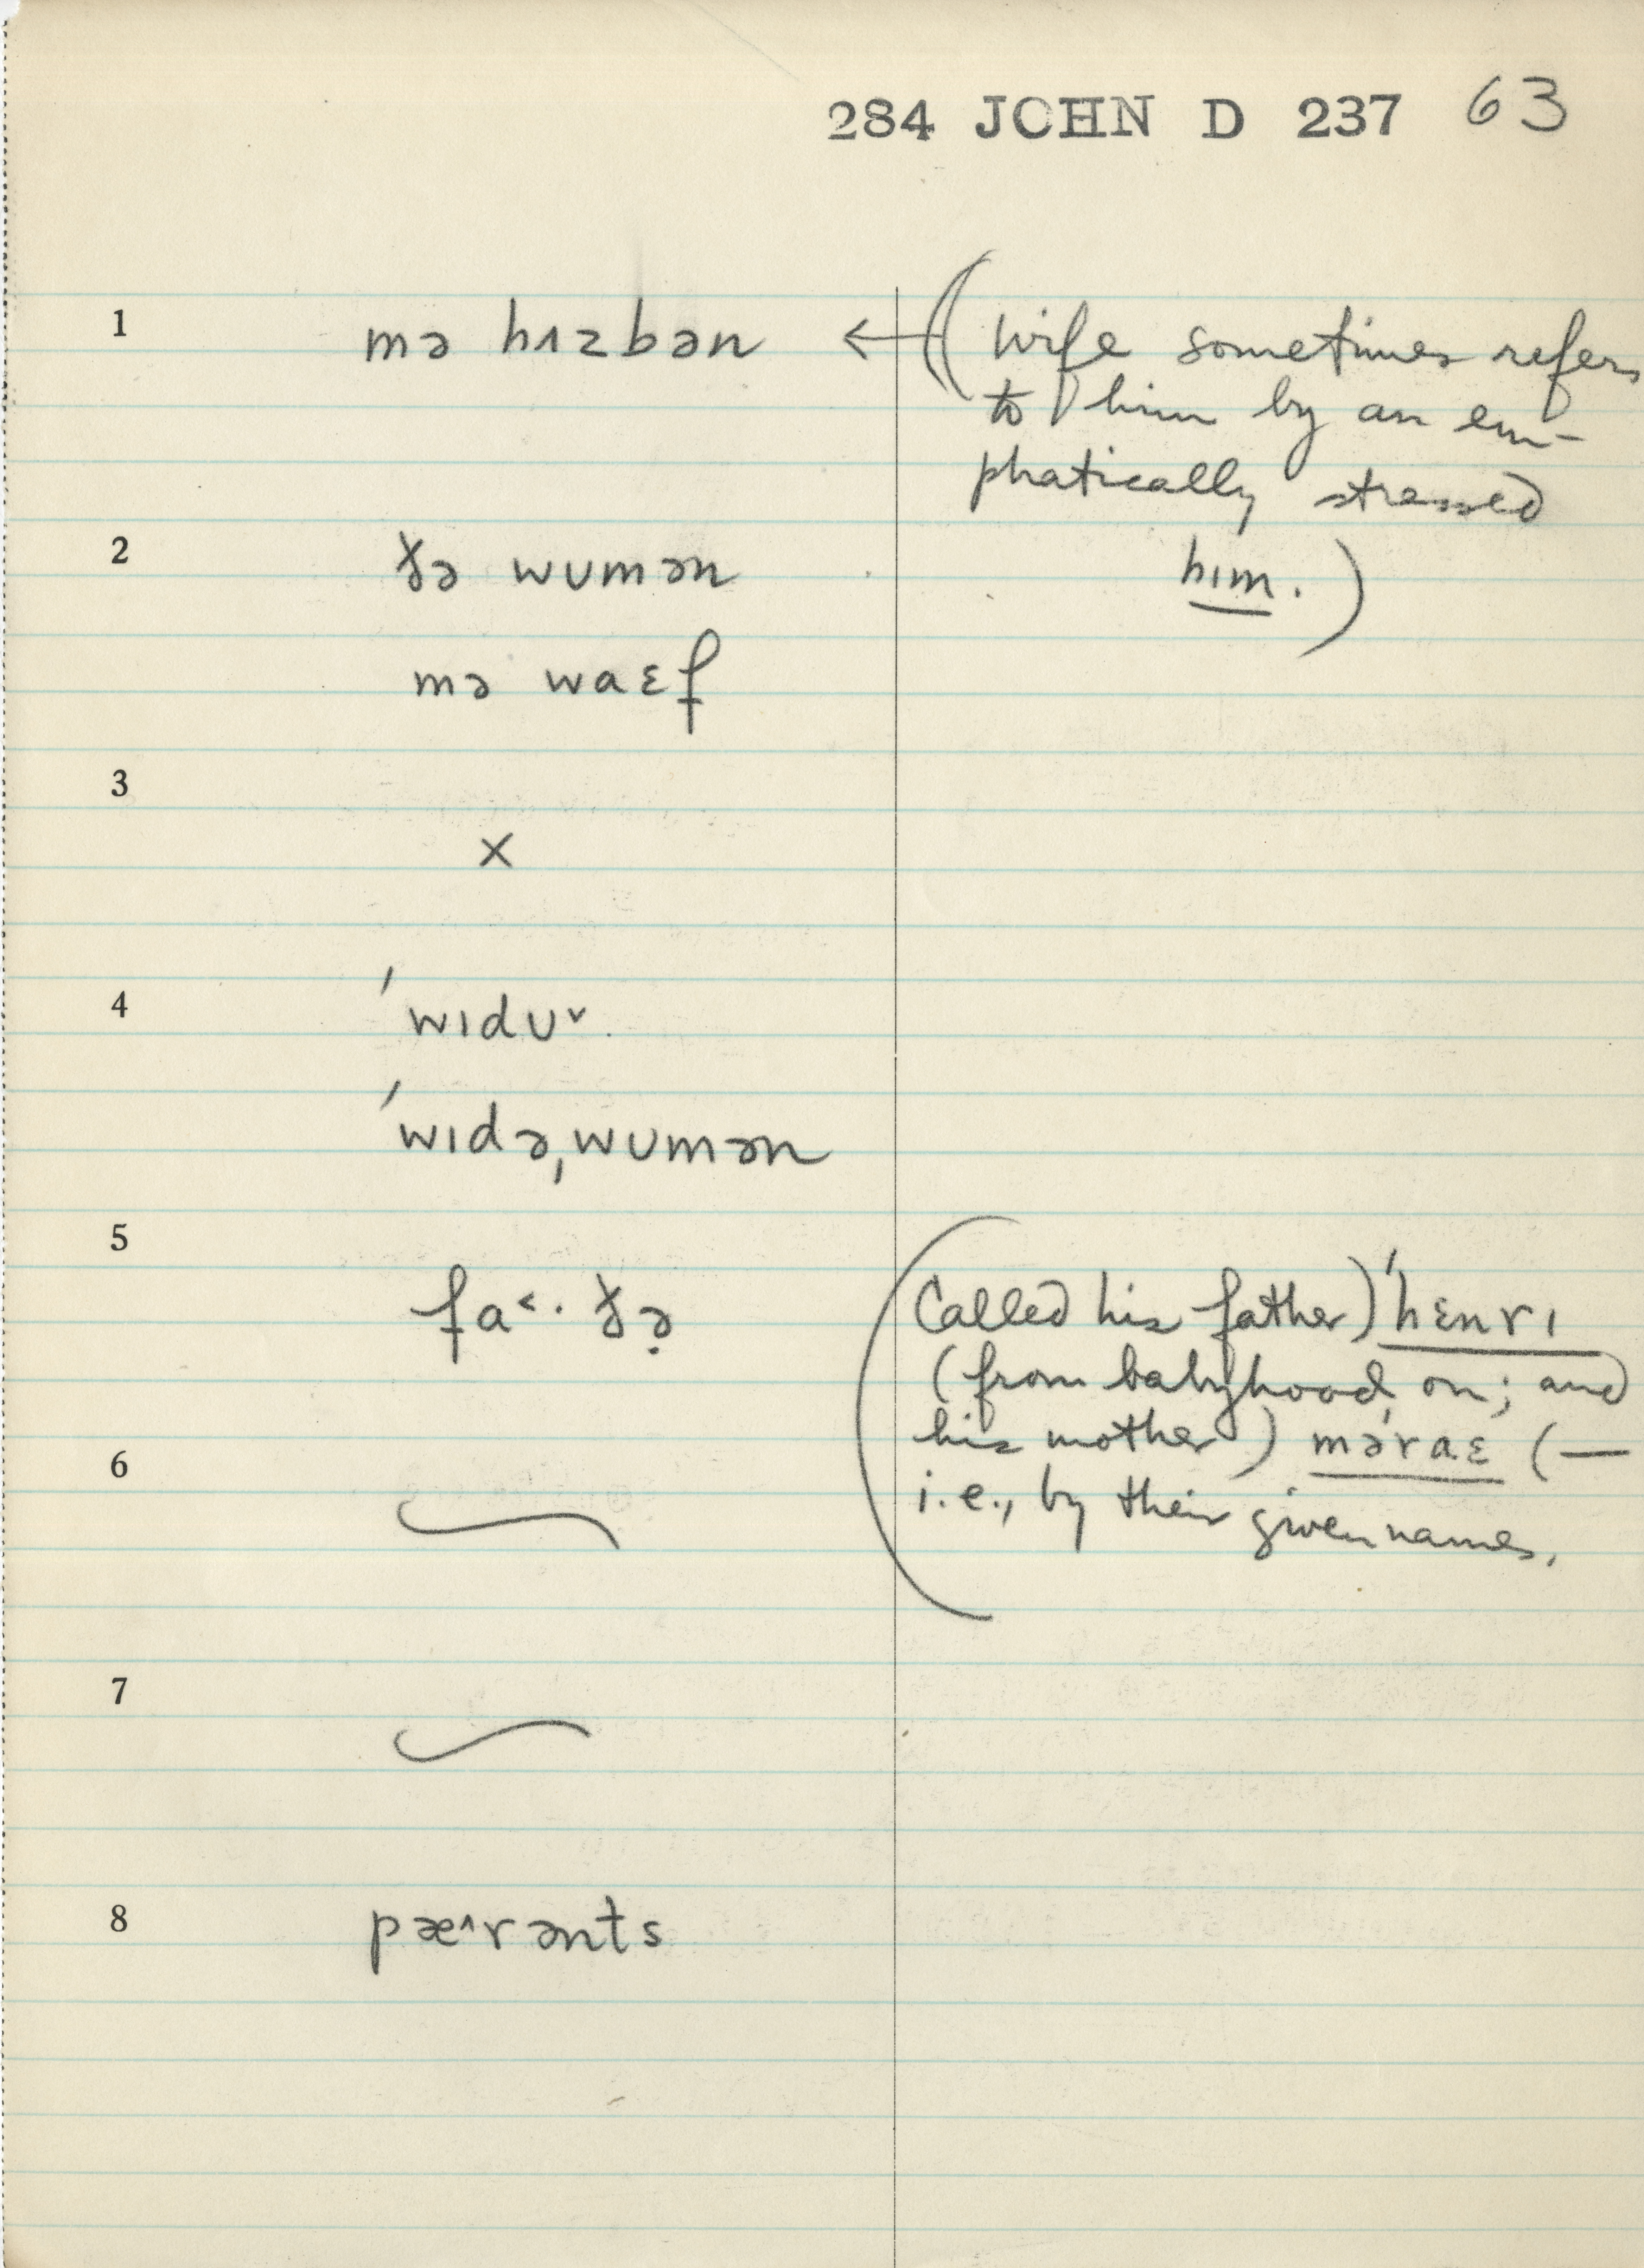 284 JOHN D 237 63
1 mə hɪzbən ← ( Wife sometimes refers
to him by an em-
phatically stressed
2 ðə wumən him. )
mə waɛf
3
×
4 ˈwɪdu˅.
ˈwɪdəˌwumən
5
fa˂· ðə̣ (Called his father) ˈhɛnrɪ
(from babyhood on; and
6 his mother) məˈraɛ (—
i.e., by their given names.
7
8 pæ˄rənts